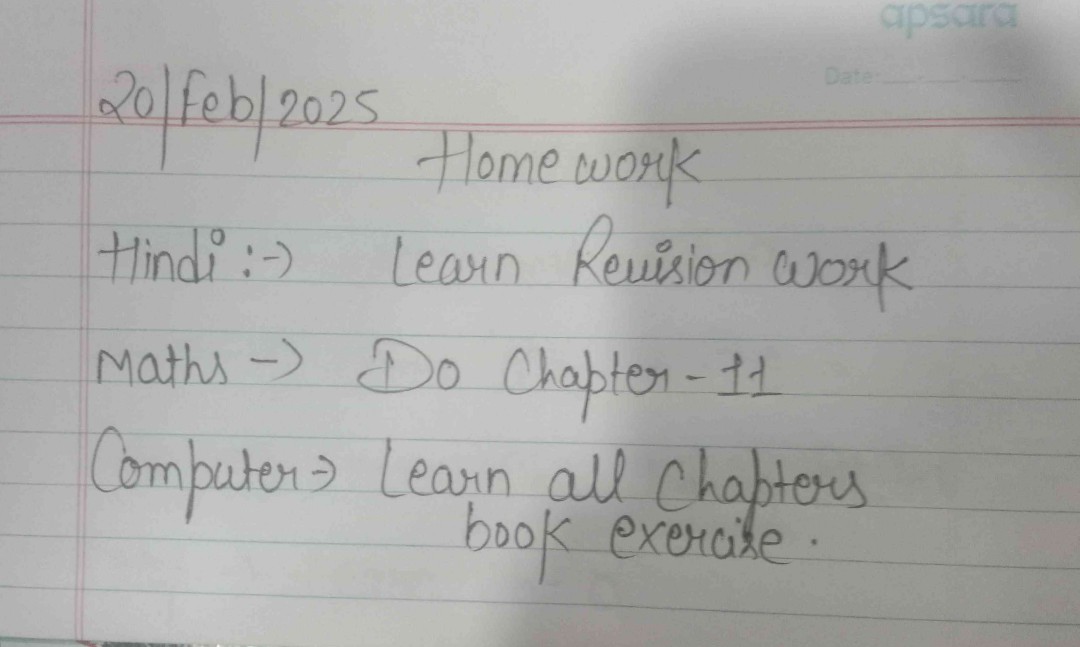 apsara
Date:
20/Feb/2025
Home work
Hindi :-> Learn Revision work
Maths -> Do Chapter - 11
Computer => Learn all Chapters
book exercise.